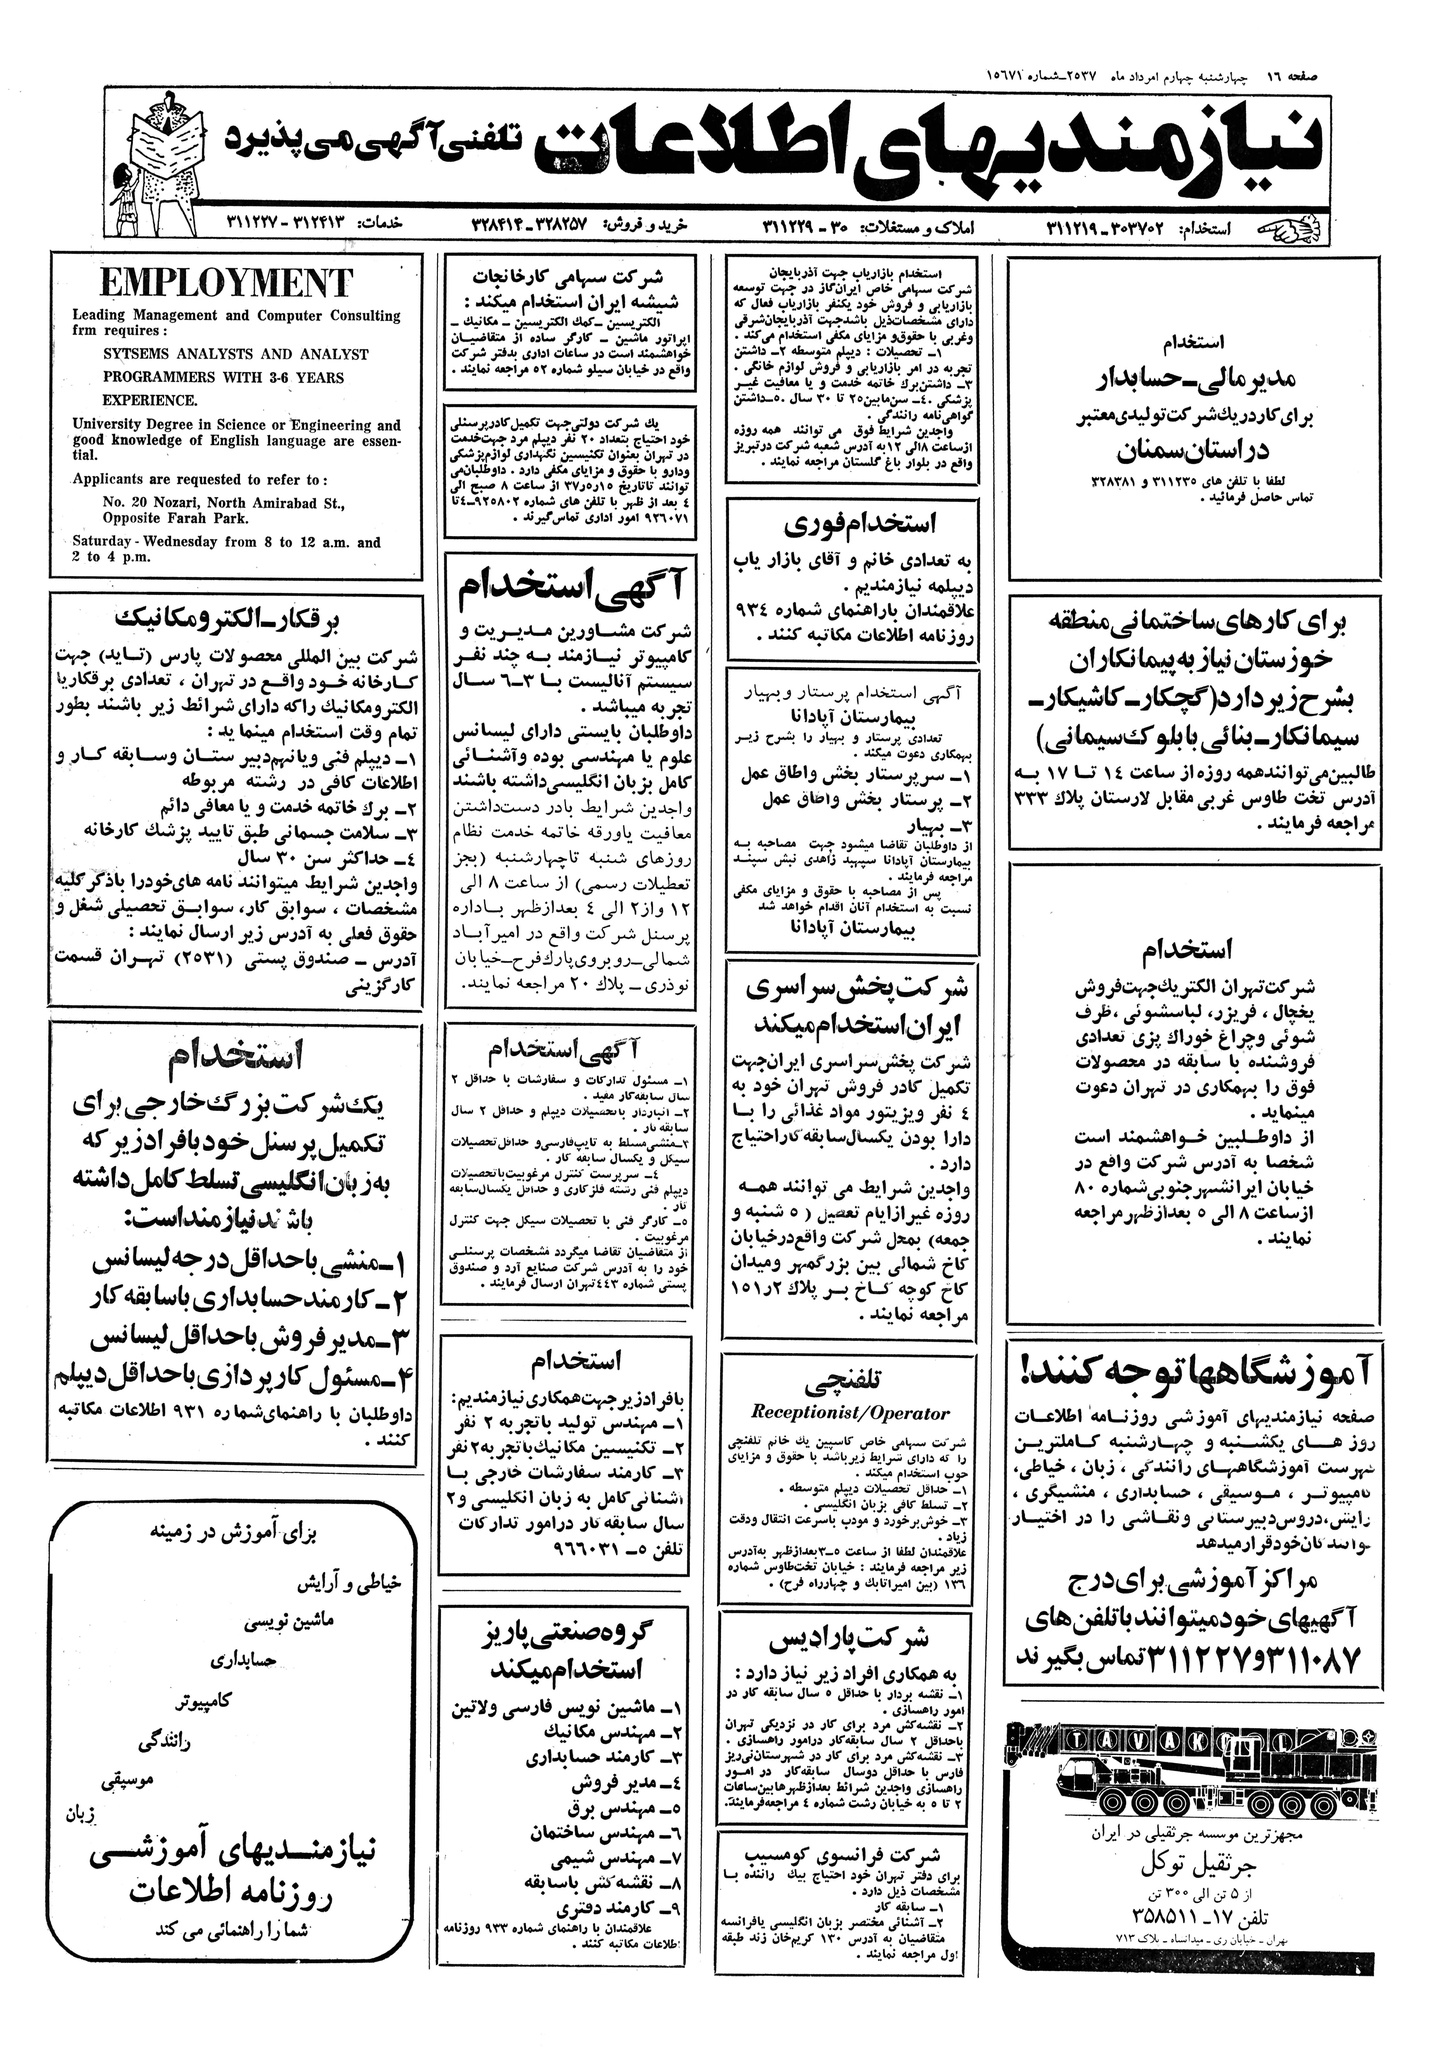 صفحه ۱۶ چهارشنبه چهارم امرداد ماه ۲۵۳۷ـ شماره ۱۵۶۷۱
نیازمندیهای اطلاعات تلفنی آگهی می‌پذیرد
استخدام: ۳۰۳۷۰۲ـ۳۱۱۲۱۹ املاک و مستغلات: ۳۰ ـ ۳۱۱۲۲۹ خرید و فروش: ۳۲۸۲۵۷ـ۳۲۸۴۱۴ خدمات: ۳۱۲۴۱۳ - ۳۱۱۲۲۷
استخدام
مدیر مالی ـ حسابدار
برای کار در یك شرکت تولیدی معتبر
در استان سمنان
لطفا با تلفن های ۳۱۱۲۳۵ و ۳۲۸۳۸۱
تماس حاصل فرمائید .
برای کارهای ساختمانی منطقه
خوزستان نیاز به پیمانکاران
بشرح زیر دارد (گچکار ـ کاشیکار ـ
سیمانکار ـ بنائی با بلوك سیمانی)
طالبین می‌توانند همه روزه از ساعت ۱۴ تا ۱۷ به
آدرس تخت طاوس غربی مقابل لارستان پلاك ۳۳۳
مراجعه فرمایند .
استخدام
شرکت تهران الکتریك جهت فروش
یخچال ، فریزر، لباسشوئی ، ظرف
شوئی و چراغ خوراك پزی تعدادی
فروشنده با سابقه در محصولات
فوق را بهمکاری در تهران دعوت
مینماید .
از داوطلبین خواهشمند است
شخصا به آدرس شرکت واقع در
خیابان ایرانشهر جنوبی شماره ۸۰
از ساعت ۸ الی ۵ بعدازظهر مراجعه
نمایند .
آموزشگاهها توجه کنند!
صفحه نیازمندیهای آموزشی روزنامه اطلاعات
روز های یکشنبه و چهارشنبه کاملترین
فهرست آموزشگاههای رانندگی ، زبان ، خیاطی،
کامپیوتر ، موسیقی ، حسابداری ، منشیگری ،
آرایش، دروس دبیرستانی و نقاشی را در اختیار
خوانندگان خود قرار میدهد
مراکز آموزشی برای درج
آگهیهای خود میتوانند با تلفن های
۳۱۱۰۸۷ و ۳۱۱۲۲۷ تماس بگیرند
TAVAKOL
مجهزترین موسسه جرثقیلی در ایران
جرثقیل توکل
از ۵ تن الی ۳۰۰ تن
تلفن ۱۷ـ ۳۵۸۵۱۱
تهران ـ خیابان ری ـ میدانشاه ـ پلاک ۷۱۳
استخدام بازاریاب جهت آذربایجان
شرکت سهامی خاص ایران‌گاز در جهت توسعه
بازاریابی و فروش خود یکنفر بازاریاب فعال که
دارای مشخصات ذیل باشد جهت آذربایجان‌شرقی
و غربی با حقوق و مزایای مکفی استخدام می‌کند .
۱ـ تحصیلات : دیپلم متوسطه ۲ـ داشتن
تجربه در امر بازاریابی و فروش لوازم خانگی .
۳ـ داشتن برك خاتمه خدمت و یا معافیت غیر
پزشکی ۴ـ سن مابین ۲۵ تا ۳۰ سال . ۵ـ داشتن
گواهی‌نامه رانندگی .
واجدین شرایط فوق می توانند همه روزه
از ساعت ۸ الی ۱۲ به آدرس شعبه شرکت در تبریز
واقع در بلوار باغ گلستان مراجعه نمایند .
استخدام فوری
به تعدادی خانم و آقای بازار یاب
دیپلمه نیازمندیم .
علاقمندان با راهنمای شماره ۹۳۴
روزنامه اطلاعات مکاتبه کنند .
آگهی استخدام پرستار و بهیار
بیمارستان آپادانا
تعدادی پرستار و بهیار را بشرح زیر
بهمکاری دعوت میکند .
۱ـ سرپرستار بخش و اطاق عمل
۲ـ پرستار بخش و اطاق عمل
۳ـ بهیار
از داوطلبان تقاضا میشود جهت مصاحبه به
بیمارستان آپادانا سپهبد زاهدی نبش سپند
مراجعه فرمایند .
پس از مصاحبه با حقوق و مزایای مکفی
نسبت به استخدام آنان اقدام خواهد شد
بیمارستان آپادانا
شرکت پخش سراسری
ایران استخدام میکند
شرکت پخش سراسری ایران جهت
تکمیل کادر فروش تهران خود به
۴ نفر ویزیتور مواد غذائی را با
دارا بودن یکسال سابقه کار احتیاج
دارد .
واجدین شرایط می توانند همه
روزه غیر از ایام تعطیل ( ۵ شنبه و
جمعه) بمحل شرکت واقع در خیابان
کاخ شمالی بین بزرگمهر و میدان
کاخ کوچه کاخ بر پلاك ۱۵۱ر۲
مراجعه نمایند .
تلفنچی
Receptionist/Operator
شرکت سهامی خاص کاسپین یك خانم تلفنچی
را که دارای شرایط زیر باشد با حقوق و مزایای
خوب استخدام میکند .
۱ـ حداقل تحصیلات دیپلم متوسطه .
۲ـ تسلط کافی بزبان انگلیسی .
۳ـ خوش برخورد و مودب با سرعت انتقال ودقت
زیاد .
علاقمندان لطفا از ساعت ۵ـ۳ بعدازظهر به‌آدرس
زیر مراجعه فرمایند : خیابان تخت‌طاوس شماره
۱۳۶ (بین امیراتابك و چهارراه فرح) .
شرکت پارادیس
به همکاری افراد زیر نیاز دارد :
۱ـ نقشه بردار با حداقل ۵ سال سابقه کار در
امور راهسازی .
۲ـ نقشه‌کش مرد برای کار در نزدیکی تهران
باحداقل ۲ سال سابقه‌کار در امور راهسازی .
۳ـ نقشه‌کش مرد برای کار در شهرستان نی‌ریز
فارس با حداقل دوسال سابقه‌کار در امور
راهسازی واجدین شرائط بعدازظهرها بین ساعات
۲ تا ۵ به خیابان رشت شماره ۴ مراجعه فرمایند.
شرکت فرانسوی کومسیب
برای دفتر تهران خود احتیاج بیك راننده با
مشخصات ذیل دارد .
۱ـ سابقه کار
۲ـ آشنائی مختصر بزبان انگلیسی یا فرانسه
متقاضیان به آدرس ۱۳۰ کریم‌خان زند طبقه
اول مراجعه نمایند .
شرکت سهامی کارخانجات
شیشه ایران استخدام میکند :
الکتریسین ـ کمك الکتریسین ـ مکانیك ـ
اپراتور ماشین ـ کارگر ساده از متقاضیان
خواهشمند است در ساعات اداری بدفتر شرکت
واقع در خیابان سیلو شماره ۵۲ مراجعه نمایند .
یك شرکت دولتی جهت تکمیل کادر پرسنلی
خود احتیاج بتعداد ۲۰ نفر دیپلم مرد جهت خدمت
در تهران بعنوان تکنیسین نگهداری لوازم پزشکی
ودارو با حقوق و مزایای مکفی دارد . داوطلبان می
توانند تاتاریخ ۳۷ر۵ر۱۵ از ساعت ۸ صبح الی
۴ بعد از ظهر با تلفن های شماره ۹۲۵۸۰۲ـ۴ تا
۹۲۶۰۷۱ امور اداری تماس گیرند .
آگهی استخدام
شرکت مشاورین مدیریت و
کامپیوتر نیازمند به چند نفر
سیستم آنالیست با ۳ـ۶ سال
تجربه میباشد .
داوطلبان بایستی دارای لیسانس
علوم یا مهندسی بوده و آشنائی
کامل بزبان انگلیسی داشته باشند
واجدین شرایط بادر دست‌داشتن
معافیت یا ورقه خاتمه خدمت نظام
روزهای شنبه تا چهارشنبه (بجز
تعطیلات رسمی) از ساعت ۸ الی
۱۲ و از ۲ الی ۴ بعدازظهر باداره
پرسنل شرکت واقع در امیر آباد
شمالی ـ روبروی پارك فرح ـ خیابان
نوذری ـ پلاك ۲۰ مراجعه نمایند.
آگهی استخدام
۱ـ مسئول تدارکات و سفارشات با حداقل ۲
سال سابقه‌کار مفید .
۲ـ انباردار باتحصیلات دیپلم و حداقل ۲ سال
سابقه کار .
۳ـ منشی مسلط به تایپ فارسی و حداقل تحصیلات
سیکل و یکسال سابقه کار .
۴ـ سرپرست کنترل مرغوبیت با تحصیلات
دیپلم فنی رشته فلزکاری و حداقل یکسال سابقه
کار .
۵ـ کارگر فنی با تحصیلات سیکل جهت کنترل
مرغوبیت .
از متقاضیان تقاضا میگردد مشخصات پرسنلی
خود را به آدرس شرکت صنایع آرد و صندوق
پستی شماره ۴۴۳ تهران ارسال فرمایند .
استخدام
بافراد زیر جهت همکاری نیازمندیم:
۱ـ مهندس تولید باتجربه ۲ نفر
۲ـ تکنیسین مکانیك باتجربه ۲ نفر
۳ـ کارمند سفارشات خارجی با
آشنائی کامل به زبان انگلیسی و ۲
سال سابقه کار در امور تدارکات
تلفن ۵ـ ۹۶۶۰۳۱
گروه صنعتی پاریز
استخدام میکند
۱ـ ماشین نویس فارسی ولاتین
۲ـ مهندس مکانیك
۳ـ کارمند حسابداری
۴ـ مدیر فروش
۵ـ مهندس برق
۶ـ مهندس ساختمان
۷ـ مهندس شیمی
۸ـ نقشه کش باسابقه
۹ـ کارمند دفتری
علاقمندان با راهنمای شماره ۹۳۳ روزنامه
اطلاعات مکاتبه کنند .
EMPLOYMENT
Leading Management and Computer Consulting
frm requires :
SYTSEMS ANALYSTS AND ANALYST
PROGRAMMERS WITH 3-6 YEARS
EXPERIENCE.
University Degree in Science or Engineering and
good knowledge of English language are essen-
tial.
Applicants are requested to refer to :
No. 20 Nozari, North Amirabad St.,
Opposite Farah Park.
Saturday - Wednesday from 8 to 12 a.m. and
2 to 4 p.m.
برقکار ـ الکترومکانیك
شرکت بین المللی محصولات پارس (تاید) جهت
کارخانه خود واقع در تهران ، تعدادی برقکار یا
الکترومکانیك را که دارای شرائط زیر باشند بطور
تمام وقت استخدام مینماید :
۱ـ دیپلم فنی و یا نهم دبیرستان و سابقه کار و
اطلاعات کافی در رشته مربوطه
۲ـ برك خاتمه خدمت و یا معافی دائم
۳ـ سلامت جسمانی طبق تایید پزشك کارخانه
۴ـ حداکثر سن ۳۰ سال
واجدین شرایط میتوانند نامه های خود را با ذکر کلیه
مشخصات ، سوابق کار، سوابق تحصیلی شغل و
حقوق فعلی به آدرس زیر ارسال نمایند :
آدرس ـ صندوق پستی (۲۵۳۱) تهران قسمت
کارگزینی
استخدام
یك شرکت بزرگ خارجی برای
تکمیل پرسنل خود بافراد زیر که
به زبان انگلیسی تسلط کامل داشته
باشند نیازمند است:
۱ـ منشی با حداقل درجه لیسانس
۲ـ کارمند حسابداری با سابقه کار
۳ـ مدیر فروش با حداقل لیسانس
۴ـ مسئول کارپردازی با حداقل دیپلم
داوطلبان با راهنمای شماره ۹۳۱ اطلاعات مکاتبه
کنند .
برای آموزش در زمینه
خیاطی و آرایش
ماشین نویسی
حسابداری
کامپیوتر
رانندگی
موسیقی
زبان
نیازمندیهای آموزشی
روزنامه اطلاعات
شما را راهنمائی می کند